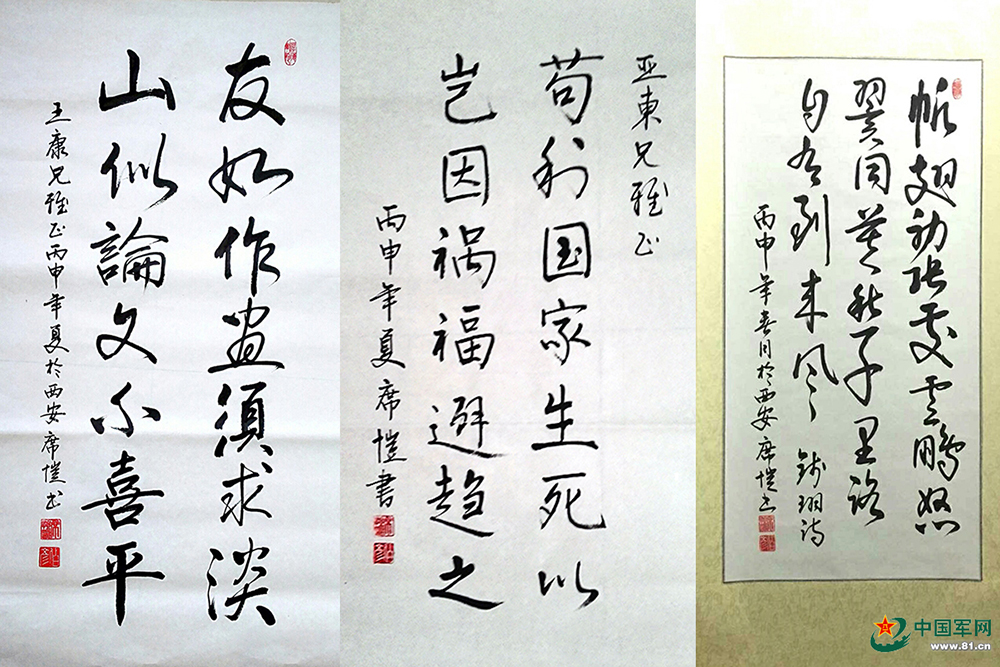 友如作畫須求淡
山似論文不喜平
王康兄雅正丙申年夏於西安席愷书
亚東兄雅正
苟利国家生死以
岂因祸福避趋之
丙申年夏席愷書
帆翅初张处云鹏怒
翼同莫愁千里路
自有到来风 钱珝诗
丙申年春月於西安席愷书
中国军网
www.81.cn